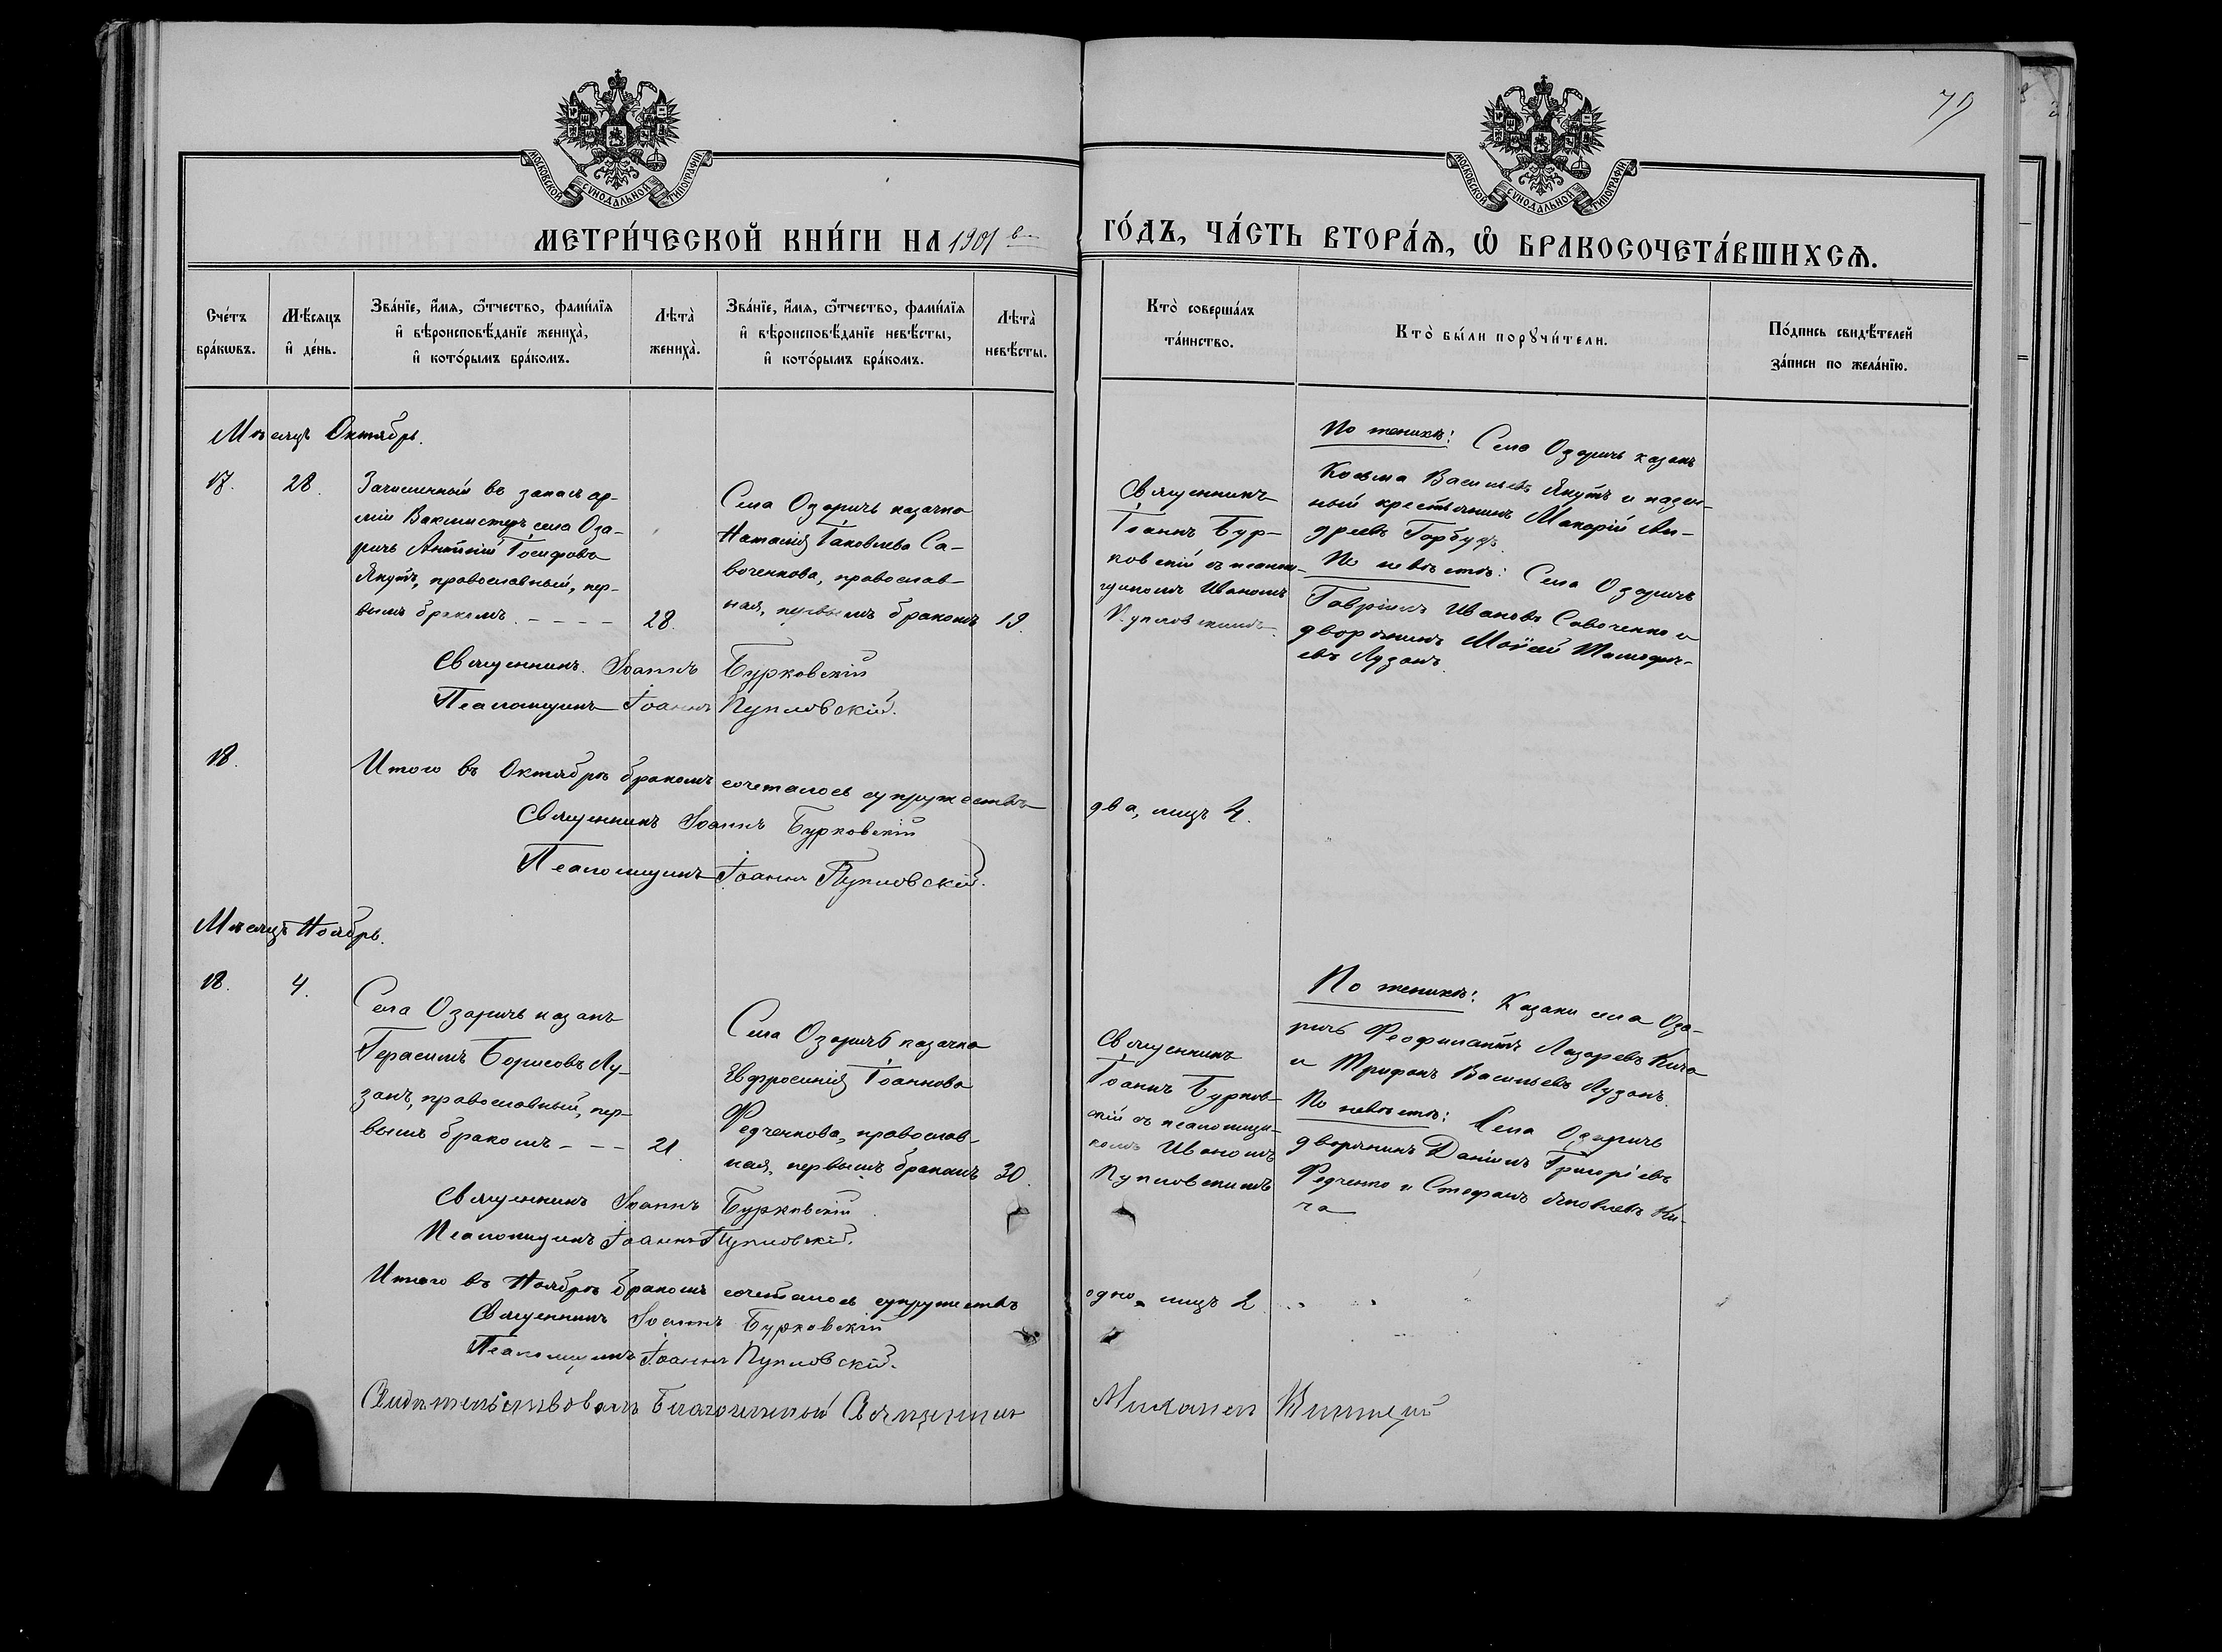 79
МОСКОВСКОЙ СѴНОДАЛЬНОЙ ТИПОГРАФІИ
МОСКОВСКОЙ СѴНОДАЛЬНОЙ ТИПОГРАФІИ
МЕТРИ́ЧЕСКОЙ КНИ́ГИ НА 1901 ГО́ДЪ, ЧА́СТЬ ВТОРА́Ѧ, Ѽ БРАКОСОЧЕТА́ВШИХСѦ.
Сче́тъ
бра́кѡвъ.
Мѣ́сяцъ
и҆ де́нь.
Зва́нїе, и҆́мя, ѻ҆́тчество, фами́лїя
и҆ вѣроисповѣ́данїе жениха̀,
и҆ кото́рымъ бра́комъ.
Лѣта̀
жениха̀.
Зва́нїе, и҆́мя, ѻ҆́тчество, фами́лїя
и҆ вѣроисповѣ́данїе невѣ́сты,
и҆ кото́рымъ бра́комъ.
Лѣта̀
невѣ́сты.
Кто̀ соверша́лъ
та́инство.
Кто̀ бы́ли порꙋчи́тели.
По́дпись свидѣ́телей
за́писи по жела́нїю.
Мѣсяцъ Октябрь.
17.
28.
Зачисленный въ запасъ ар-
міи Вахмистръ села Оза-
ричъ Антоній Іосифовъ
Якутъ, православный, пер-
вымъ бракомъ. - - - -
28.
Села Озаричъ казачка
Наталія Іаковлева Са-
воченкова, православ-
ная, первымъ бракомъ
19.
Священникъ
Іоаннъ Бур-
ковскій съ псалом-
щикомъ Иваномъ
Пупловскимъ.
По женихѣ: Села Озаричъ казакъ
Косьма Васильевъ Якутъ и казен-
ный крестьянинъ Макарій Ан-
дреевъ Горбуръ.
По невѣстѣ: Села Озаричъ
Гавріилъ Ивановъ Савоченко и
дворянинъ Моѵсей
евъ Лузанъ.
Священникъ Іоаннъ Бурковскій
Псаломщикъ Іоаннъ Пупловскій.
18.
Итого въ Октябрѣ бракомъ сочеталось супружествъ два, лицъ 4.
Священникъ Іоаннъ Бурковскій
Псаломщикъ Іоаннъ Пупловскій.
Мѣсяцъ Ноябрь.
18.
4.
Села Озаричъ казакъ
Герасимъ Борисовъ Лу-
занъ, православный, пер-
вымъ бракомъ - - -
21.
Села Озаричъ казачка
Евфросинія Іоаннова
Федченкова, православ-
ная, первымъ бракомъ
30.
Священникъ
Іоаннъ Бурков-
скій съ псаломщи-
комъ Иваномъ
Пупловскимъ
По женихѣ: Казаки села Оза-
ричъ Феофилактъ Лазаревъ Кича
и Трифонъ Васильевъ Лузанъ.
По невѣстѣ: Села Озаричъ
дворянинъ Даніилъ Григоріевъ
Федченко и Стефанъ Яковлевъ Ки-
ча
Священникъ Іоаннъ Бурковскій
Псаломщикъ Іоаннъ Пупловскій.
Итого въ Ноябрѣ бракомъ сочеталось супружествъ одно, лицъ 2
Священникъ Іоаннъ Бурковскій
Псаломщикъ Іоаннъ Пупловскій.
Свидѣтельствовалъ Благочинный Священникъ Михаилъ